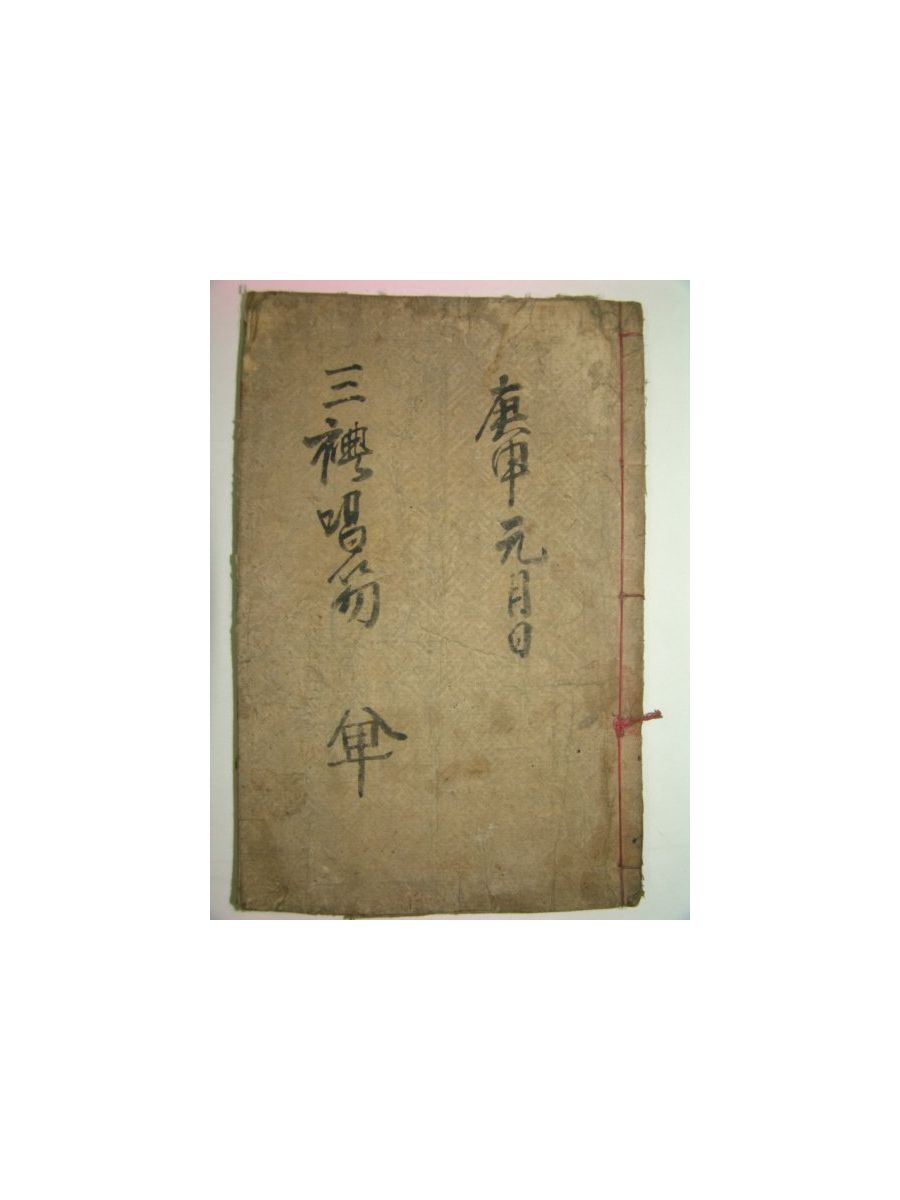 庚申元月日
三禮唱笏 單